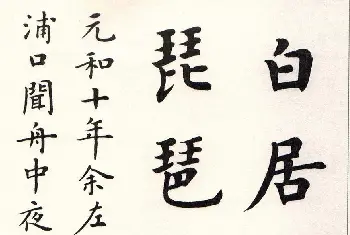 白居
琵琶
元和十年余左
浦口聞舟中夜